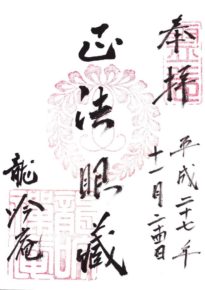 奉拝
平成二十七年
十一月二十四日
正法眼藏
龍吟庵